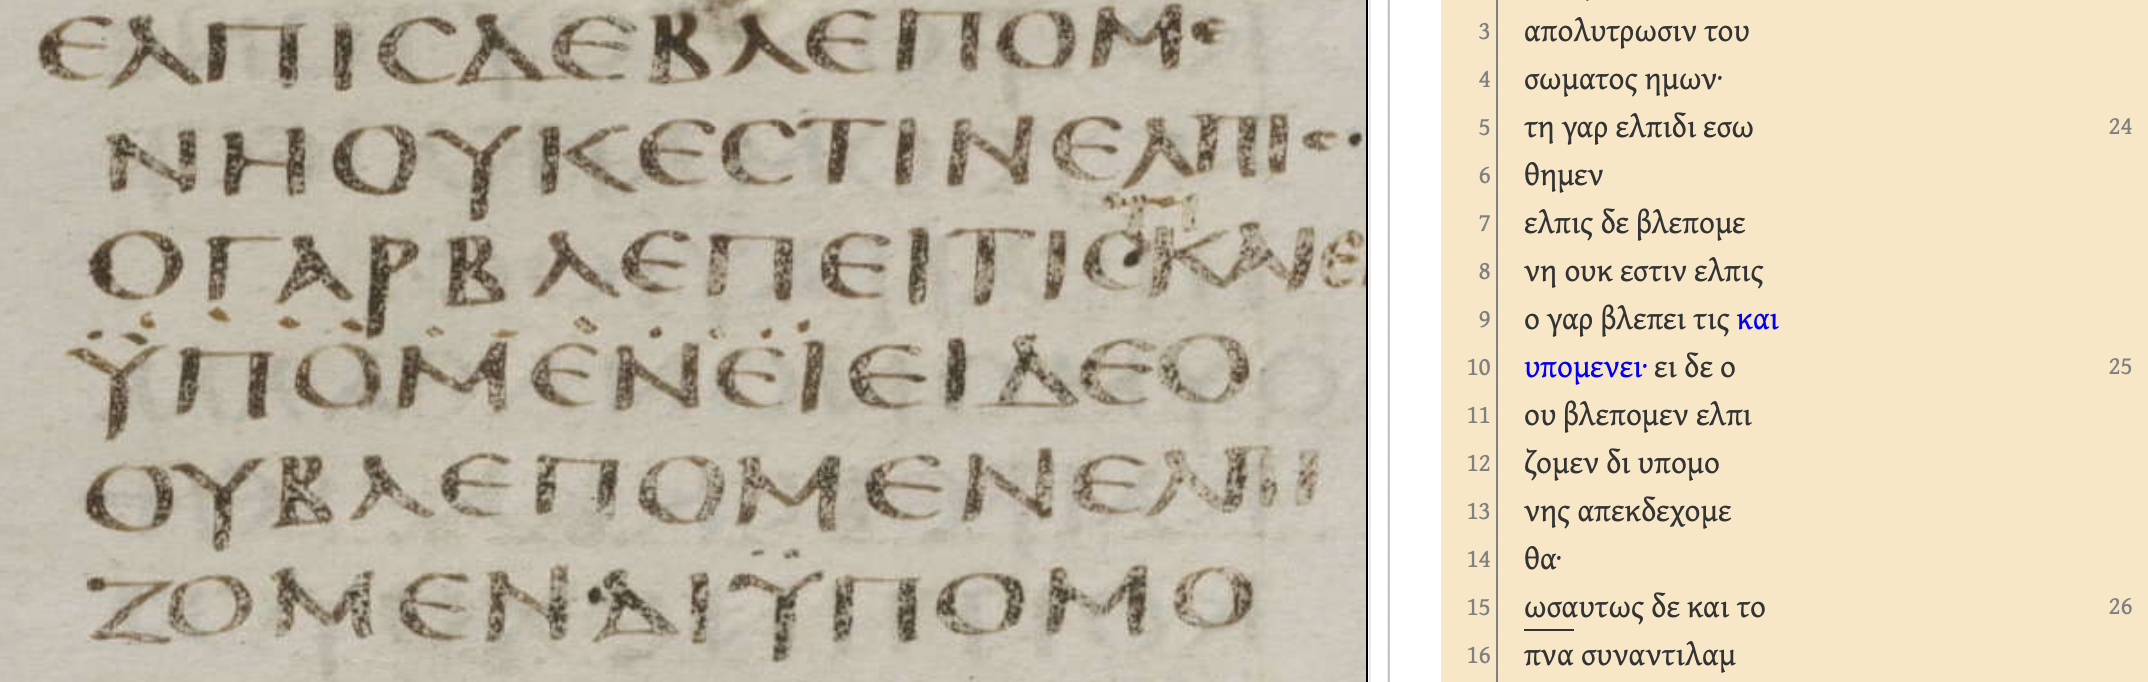 ΕΛΠΙCΔΕΒΛΕΠΟΜΕ
ΝΗΟΥΚΕCΤΙΝΕΛΠΙC
ΟΓΑΡΒΛΕΠΕΙΤΙCΚΑΙΕ
ΫΠΟΜΕΝΕΙΕΙΔΕΟ
ΟΥΒΛΕΠΟΜΕΝΕΛΠΙ
ΖΟΜΕΝ·ΔΙΫΠΟΜΟ
3 απολυτρωσιν του
4 σωματος ημων·
5 τη γαρ ελπιδι εσω 24
6 θημεν
7 ελπις δε βλεπομε
8 νη ουκ εστιν ελπις
9 ο γαρ βλεπει τις και
10 υπομενει· ει δε ο 25
11 ου βλεπομεν ελπι
12 ζομεν δι υπομο
13 νης απεκδεχομε
14 θα·
15 ωσαυτως δε και το 26
16 πνα συναντιλαμ